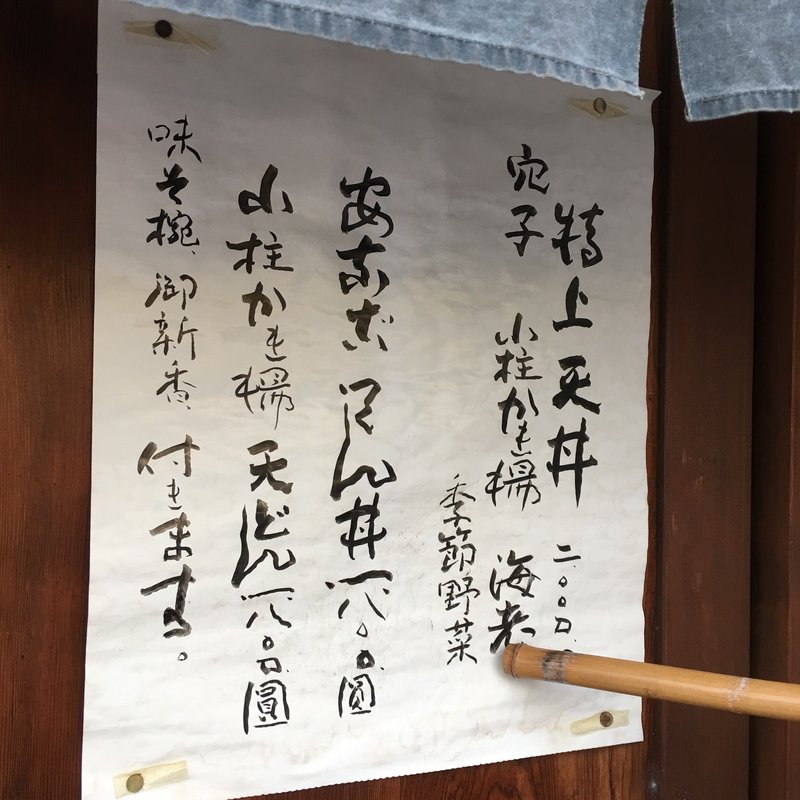 特上天丼 二、〇〇〇
穴子 小柱かき揚 海老
季節野菜
あなご てん丼 一八、〇〇圓
小柱かき揚 天どん 一八、〇〇圓
味そ椀、御新香、付きます。